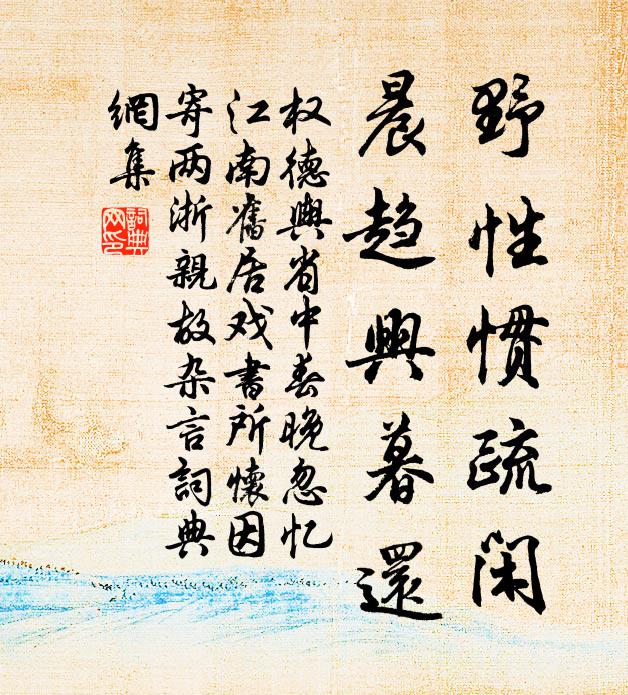 野性惯疏闲
晨趋興暮還
权德輿省中春晚忽忆
江南舊居戏書所懷因
寄两浙親故杂言詞典
網集
詞典
网印